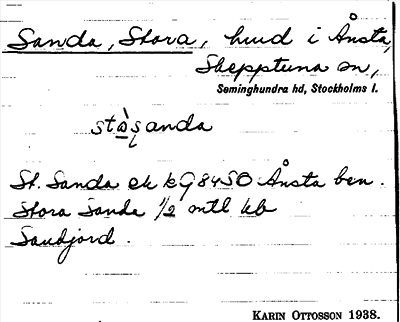 Sanda, Stora, hmd i Ånsta,
Skepptuna sn,
Seminghundra hd, Stockholms l.
sta`sanda
St. Sanda ek kG84SO Ånsta ben.
Stora Sanda 1/2 mtl kb
Sandjord.
KARIN OTTOSSON 1938.